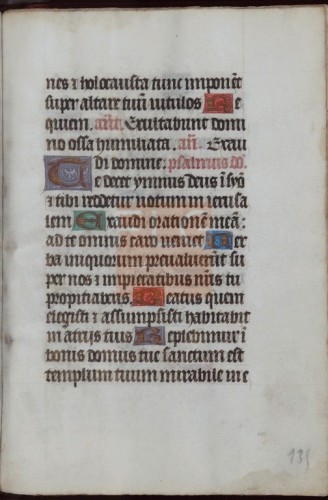 nes ⁊ holocausta tunc imponẽt
super altare tuũ uitulos Re
quiem. añt. Exultabunt domi
no ossa humiliata. añ. Exau
di domine. psalmus dd.
Te decet ymnus deus ĩ syõ
⁊ tibi reddetur uotum in ierusa
lem Exaudi orationẽ meã:
ad te omnis caro ueniet Uer
ba iniquorum preualuerũt su
per nos ⁊ impietatibus nr̃is tu
propitiaberis. Beatus quem
elegisti ⁊ assumpsisti habitabit
in atrijs tuis Replebimur ĩ
bonis domus tue sanctum est
templum tuum mirabile in e
131